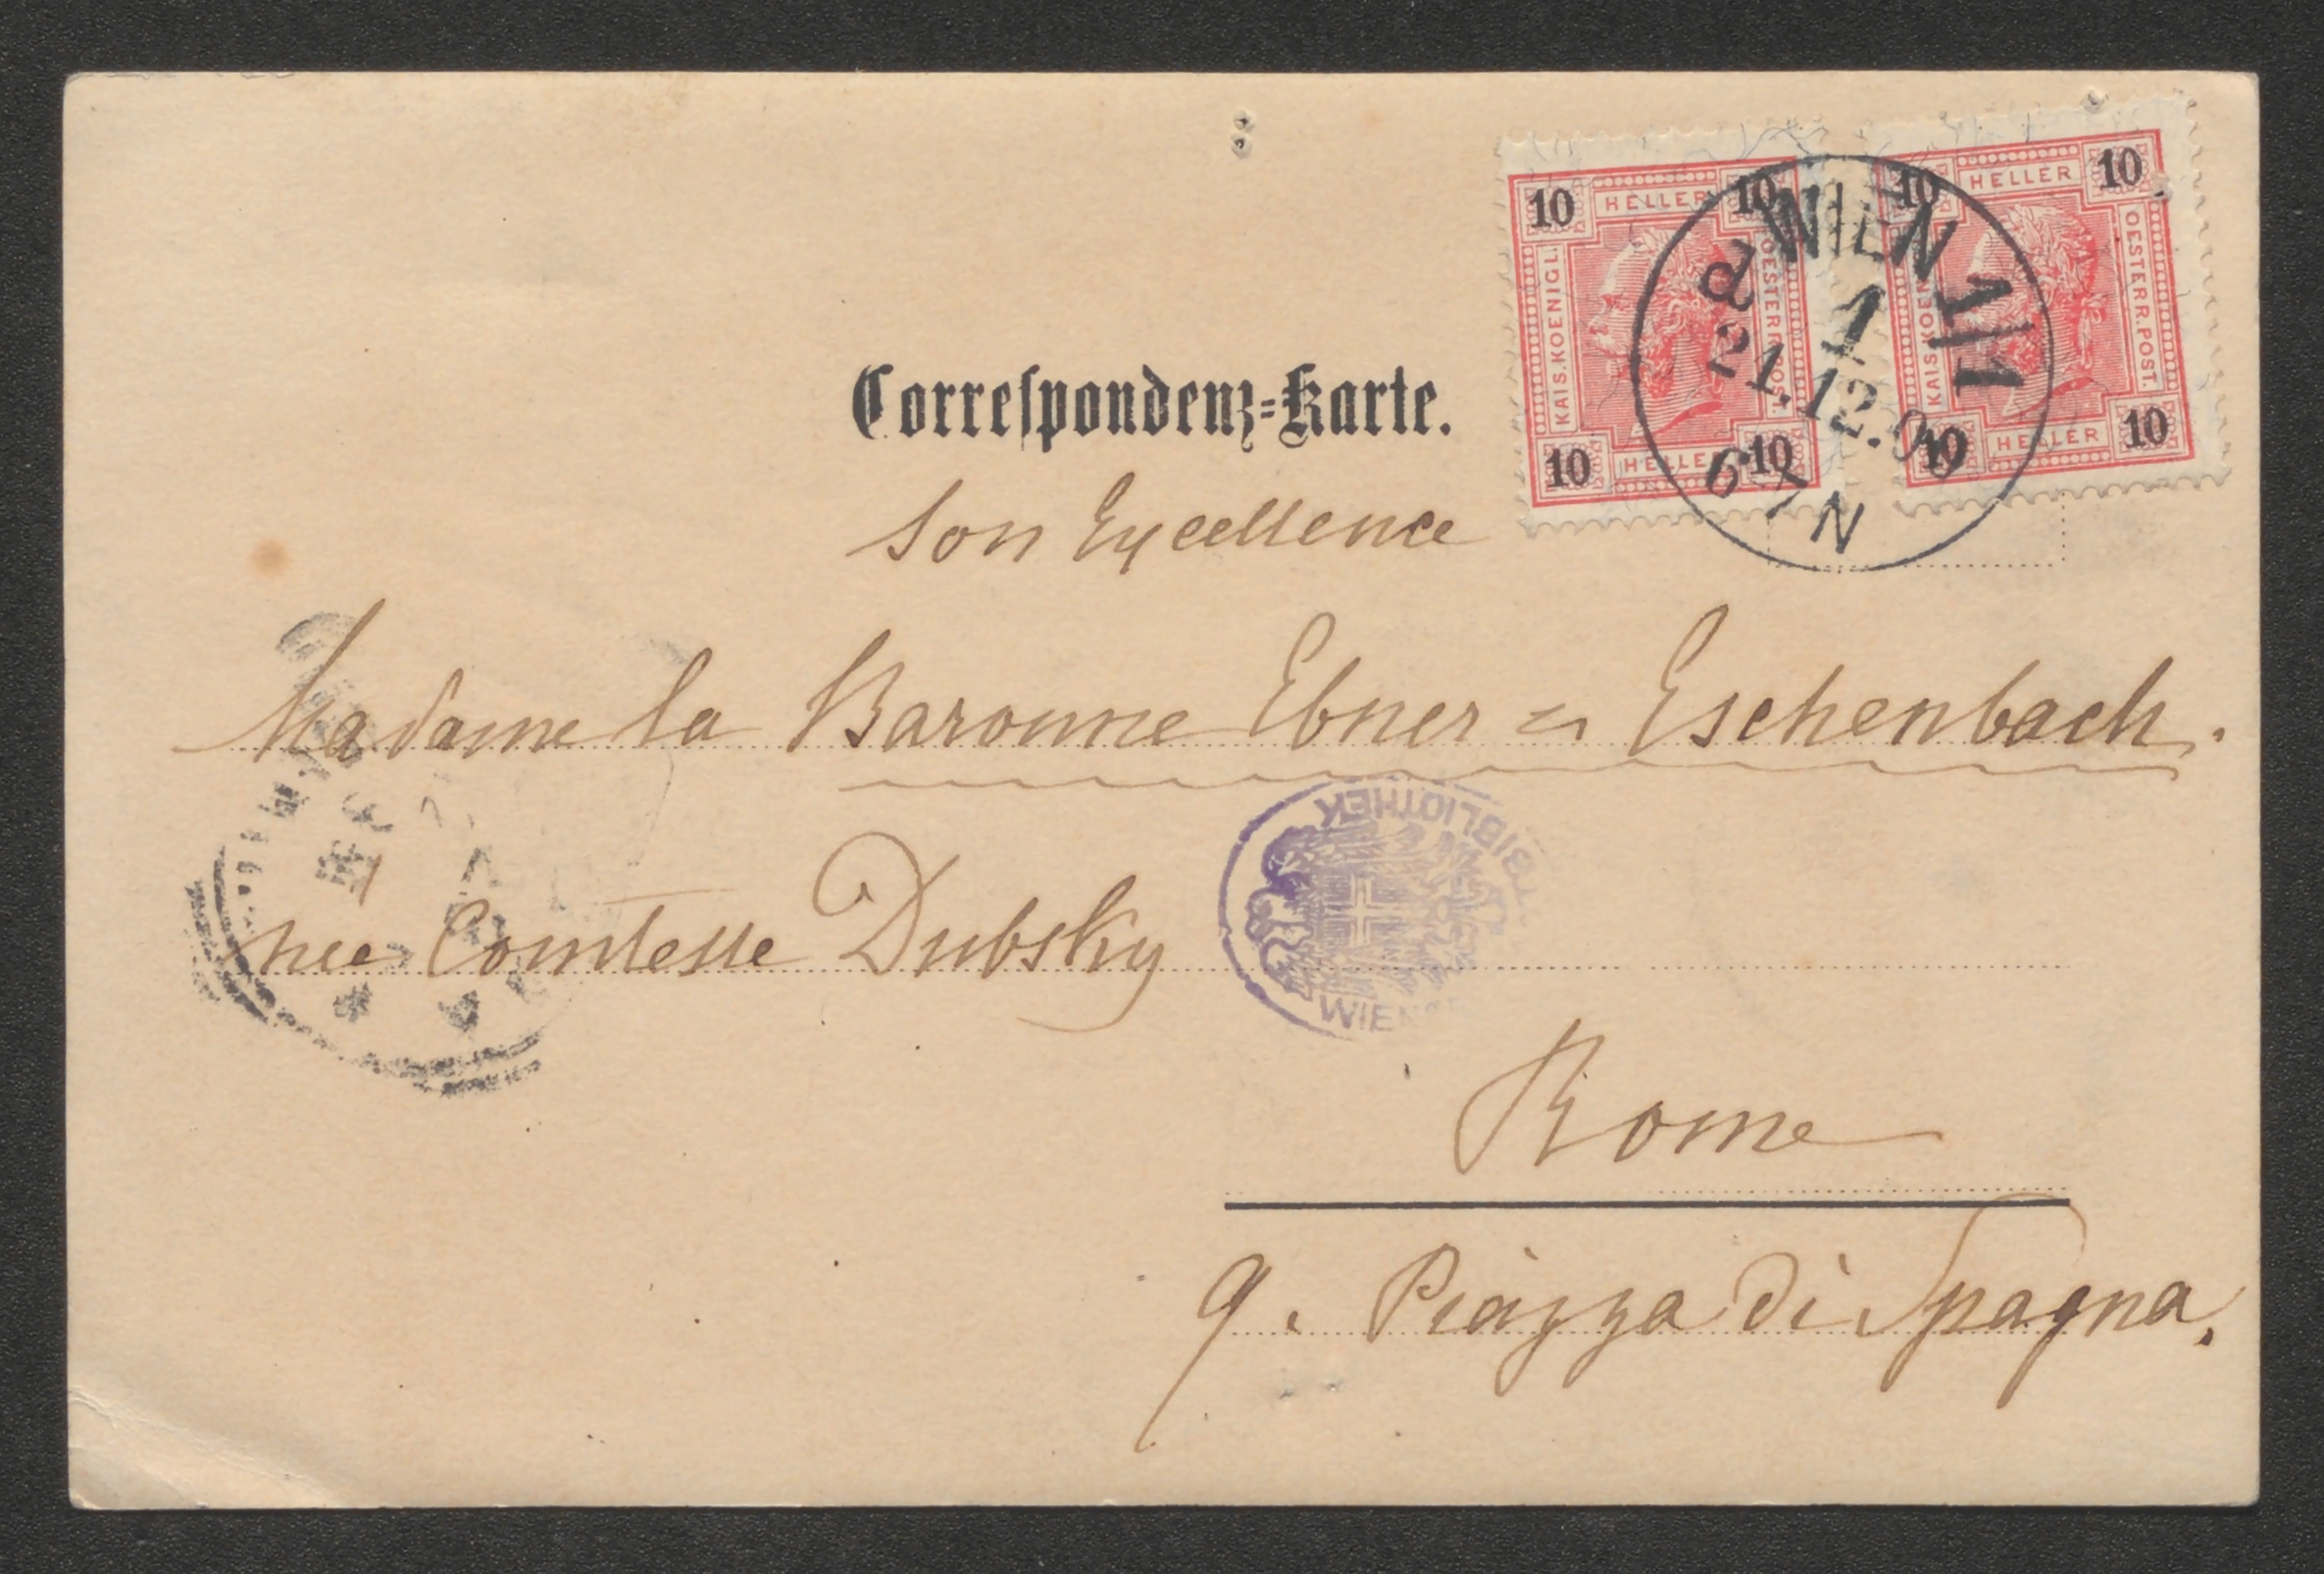 10 HELLER 10
KAIS.KOENIGL.
OESTERR.POST.
10 HELLER 10
10 HELLER 10
KAIS.KOENIGL.
OESTERR.POST.
10 HELLER 10
WIEN 1/1
d 1
21.12.
6-7 N
Correſpondenz=Karte.
Son Excellence
Madame la Baronne Ebner = Eschenbach.
née Comtesse Dubsky
BIBLIOTHEK
WIEN
Rome
9. Piazza di Spagna.